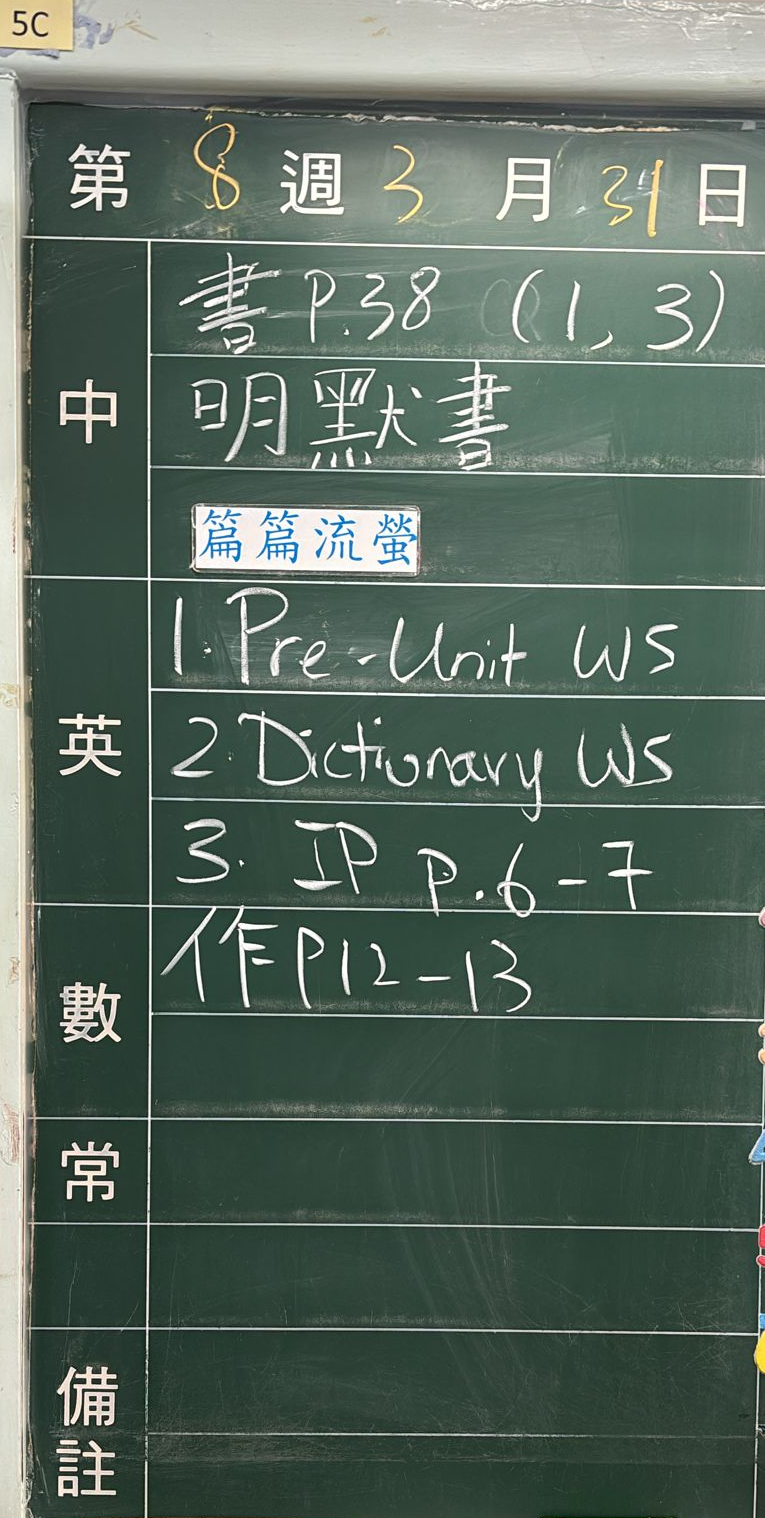 5C
第 8 週 3 月 31 日
中
書 P.38 (1, 3)
明默書
篇篇流螢
英
1. Pre-Unit WS
2. Dictionary WS
3. IP P.6-7
數
作P12-13
常
備註